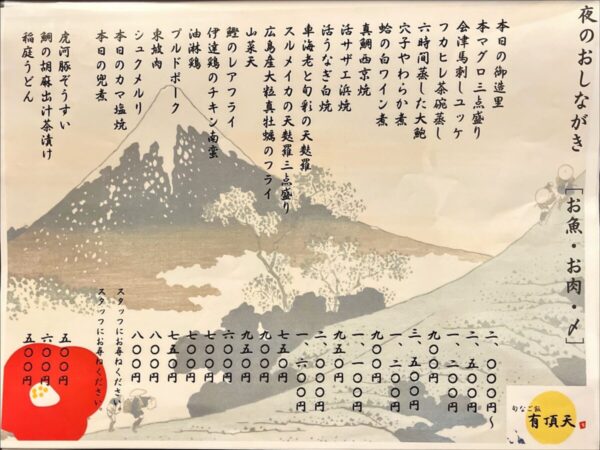 夜のおしながき [お魚・お肉・〆]
本日の御造里 二、〇〇〇円〜
本マグロ三点盛り 二、五〇〇円
会津馬刺しユッケ 一、二〇〇円
フカヒレ茶碗蒸し 九〇〇円
六時間蒸した大鮑 三、五〇〇円
穴子やわらか煮 一、二〇〇円
蛤の白ワイン煮 九〇〇円
真鯛西京焼 一、一〇〇円
活サザエ浜焼 九五〇円
活うなぎ白焼 二、〇〇〇円
車海老と旬彩の天麩羅 一、六〇〇円
スルメイカの天麩羅三点盛り 七五〇円
広島産大粒真牡蠣のフライ 九〇〇円
山菜天 九五〇円
鰹のレアフライ 六〇〇円
伊達鶏のチキン南蛮 七〇〇円
油淋鶏 七〇〇円
プルドポーク 七五〇円
東坡肉 八〇〇円
シュクメルリ 八〇〇円
本日のカマ塩焼 スタッフにお尋ねください。
本日の兜煮 スタッフにお尋ねください。
虎河豚ぞうすい 五〇〇円
鯛の胡麻出汁茶漬け 五〇〇円
稲庭うどん 五〇〇円
旬なご飯
有頂天